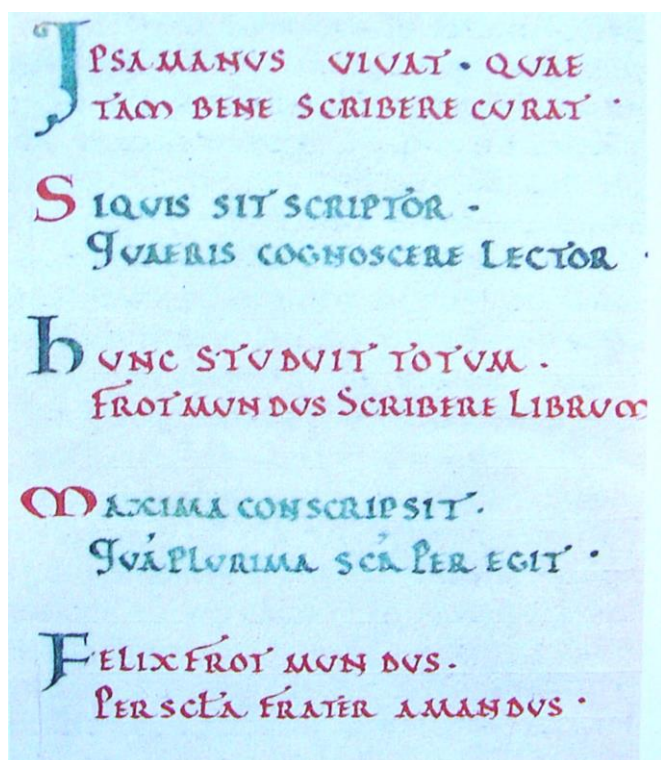 IPSA MANVS VIVAT · QVAE
TAM BENE SCRIBERE CVRAT ·
SIQVIS SIT SCRIPTOR ·
QVAERIS COGNOSCERE LECTOR ·
HUNC STUDUIT TOTVM ·
FROTMUNDUS SCRIBERE LIBRVM
MAXIMA CONSCRIPSIT ·
QVA PLVRIMA SCA PER EGIT ·
FELIX FROTMUNDVS ·
PER SCLA FRATER AMANDVS ·